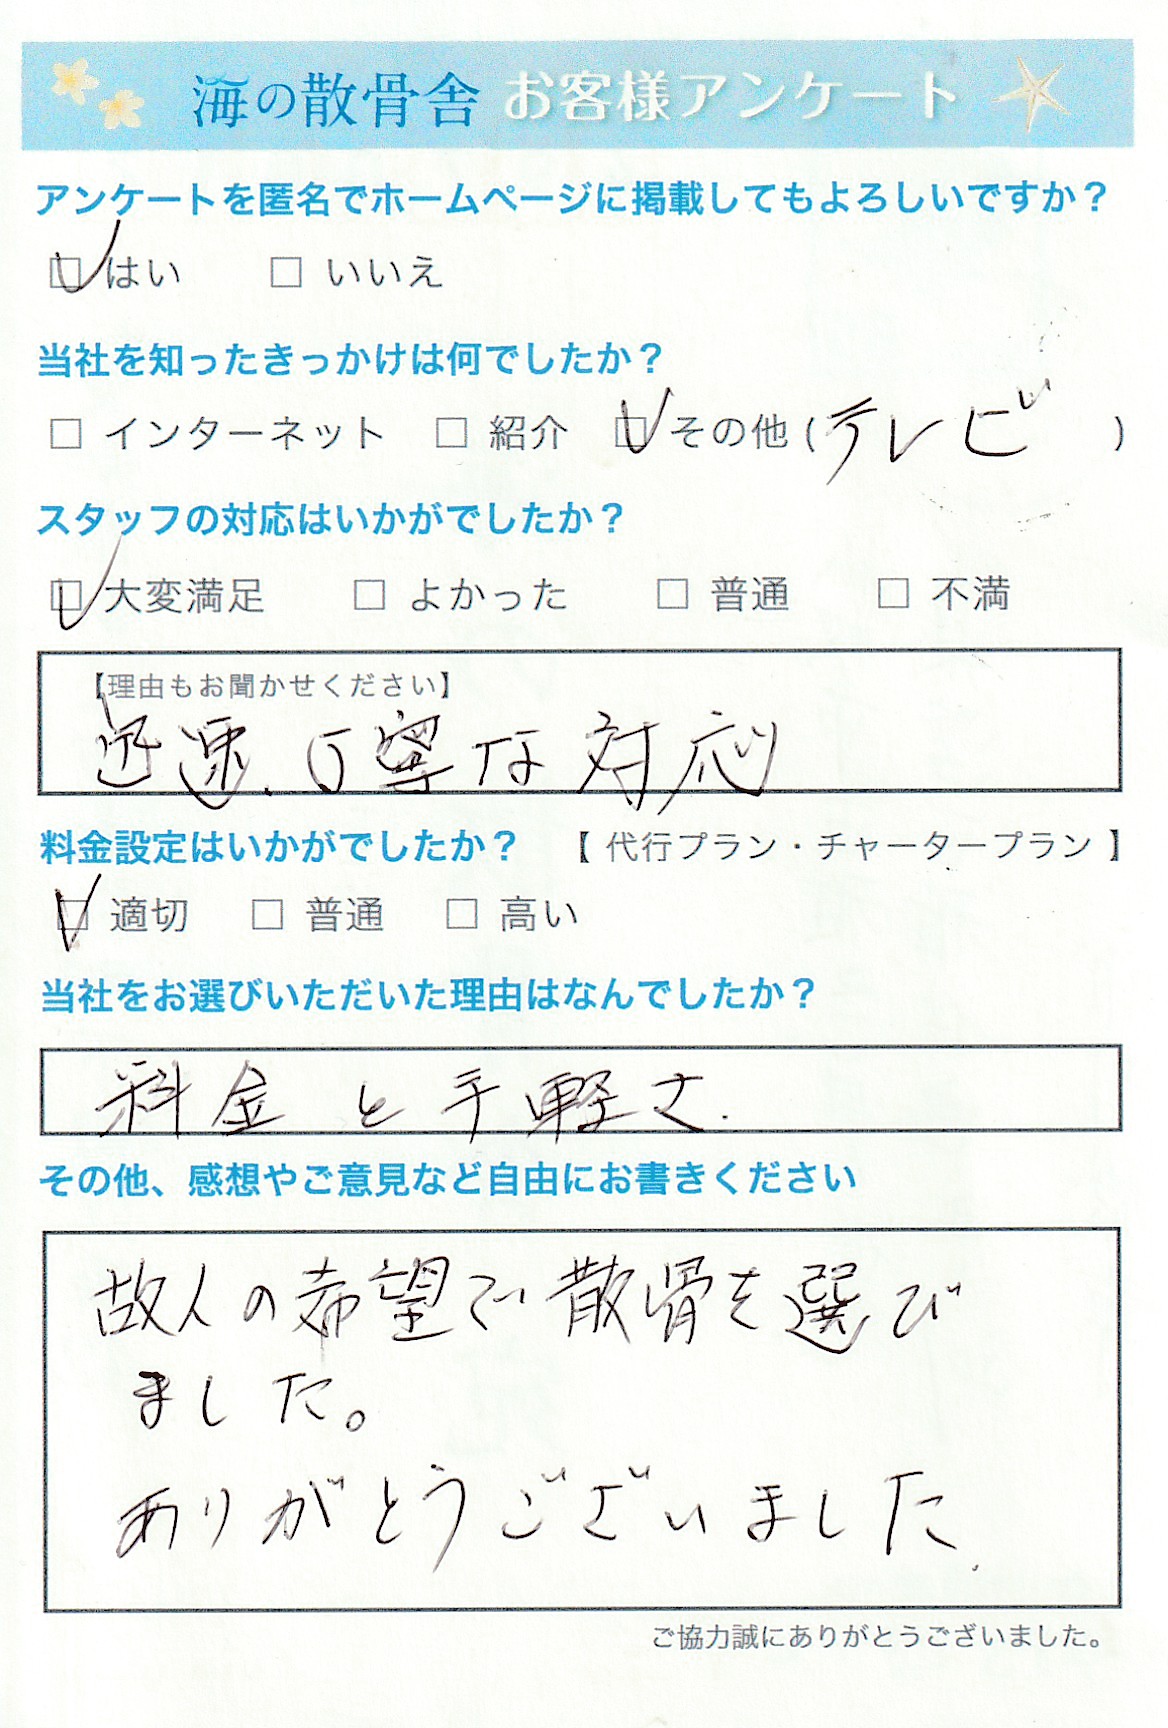 海の散骨舎 お客様アンケート
アンケートを匿名でホームページに掲載してもよろしいですか？
☑ はい □ いいえ
当社を知ったきっかけは何でしたか？
□ インターネット □ 紹介 ☑ その他 (テレビ)
スタッフの対応はいかがでしたか？
☑ 大変満足 □ よかった □ 普通 □ 不満
【理由もお聞かせください】
迅速、丁寧な対応
料金設定はいかがでしたか？ 【 代行プラン・チャータープラン 】
☑ 適切 □ 普通 □ 高い
当社をお選びいただいた理由はなんでしたか？
料金と手軽さ.
その他、感想やご意見など自由にお書きください
故人の希望で散骨を選び
ました。
ありがとうございました.
ご協力誠にありがとうございました。